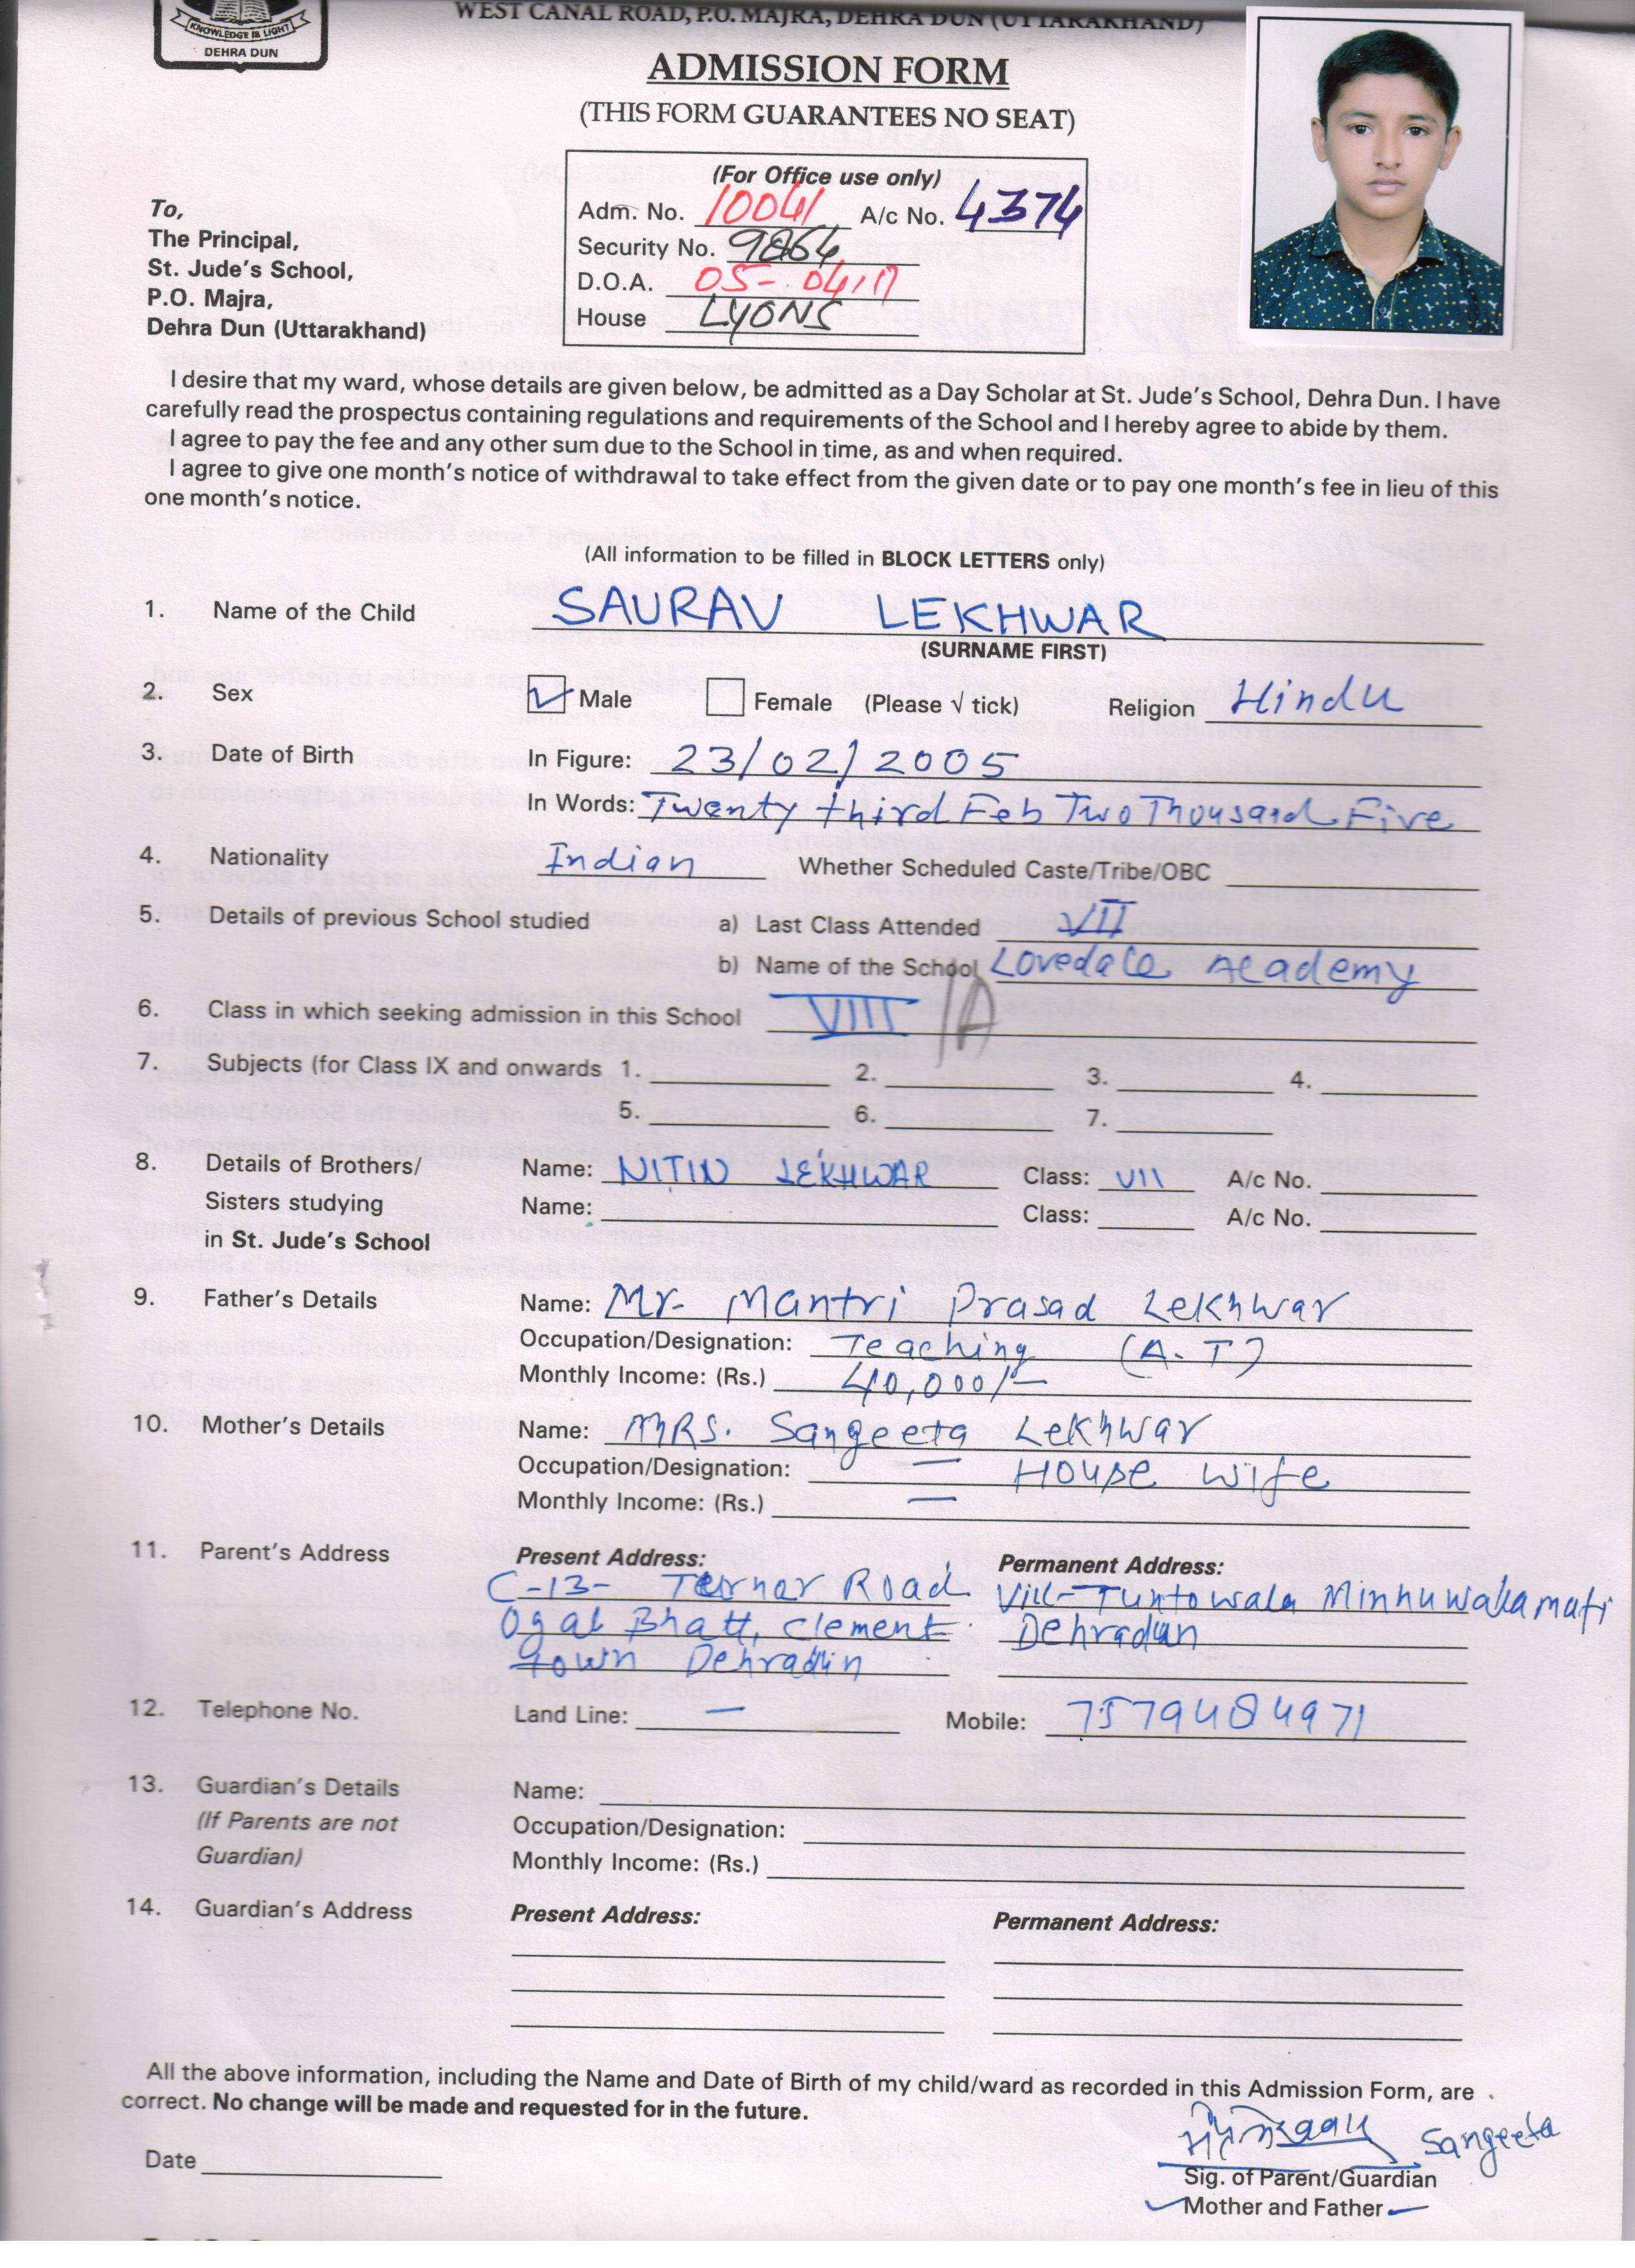 KNOWLEDGE IS LIGHT
DEHRA DUN
WEST CANAL ROAD, P.O. MAJRA, DEHRA DUN (UTTARAKHAND)
ADMISSION FORM
(THIS FORM GUARANTEES NO SEAT)
(For Office use only)
Adm. No. 10041 A/c No. 4374
Security No. 9864
D.O.A. 05-04/17
House LYONS
To,
The Principal,
St. Jude's School,
P.O. Majra,
Dehra Dun (Uttarakhand)
I desire that my ward, whose details are given below, be admitted as a Day Scholar at St. Jude's School, Dehra Dun. I have
carefully read the prospectus containing regulations and requirements of the School and I hereby agree to abide by them.
I agree to pay the fee and any other sum due to the School in time, as and when required.
I agree to give one month's notice of withdrawal to take effect from the given date or to pay one month's fee in lieu of this
one month's notice.
(All information to be filled in BLOCK LETTERS only)
1. Name of the Child SAURAV LEKHWAR
(SURNAME FIRST)
2. Sex Male Female (Please √ tick) Religion Hindu
3. Date of Birth In Figure: 23/02/2005
In Words: Twenty third Feb Two Thousand Five
4. Nationality Indian Whether Scheduled Caste/Tribe/OBC
5. Details of previous School studied a) Last Class Attended VII
b) Name of the School Lovedale Academy
6. Class in which seeking admission in this School VIII /A
7. Subjects (for Class IX and onwards 1. 2. 3. 4.
5. 6. 7.
8. Details of Brothers/ Name: NITIN LEKHWAR Class: VII A/c No.
Sisters studying Name: Class: A/c No.
in St. Jude's School
9. Father's Details Name: Mr. Mantri Prasad Lekhwar
Occupation/Designation: Teaching (A.T)
Monthly Income: (Rs.) 40,000/-
10. Mother's Details Name: MRS. Sangeeta Lekhwar
Occupation/Designation: — House wife
Monthly Income: (Rs.) —
11. Parent's Address Present Address: Permanent Address:
C-13- Road Vill- Tuntowala
Ogal Bhatt, Clement Dehradun
Town Dehradun
12. Telephone No. Land Line: — Mobile: 7579484971
13. Guardian's Details Name:
(If Parents are not Occupation/Designation:
Guardian) Monthly Income: (Rs.)
14. Guardian's Address Present Address: Permanent Address:
All the above information, including the Name and Date of Birth of my child/ward as recorded in this Admission Form, are
correct. No change will be made and requested for in the future.
Sangeeta
Date Sig. of Parent/Guardian
Mother and Father